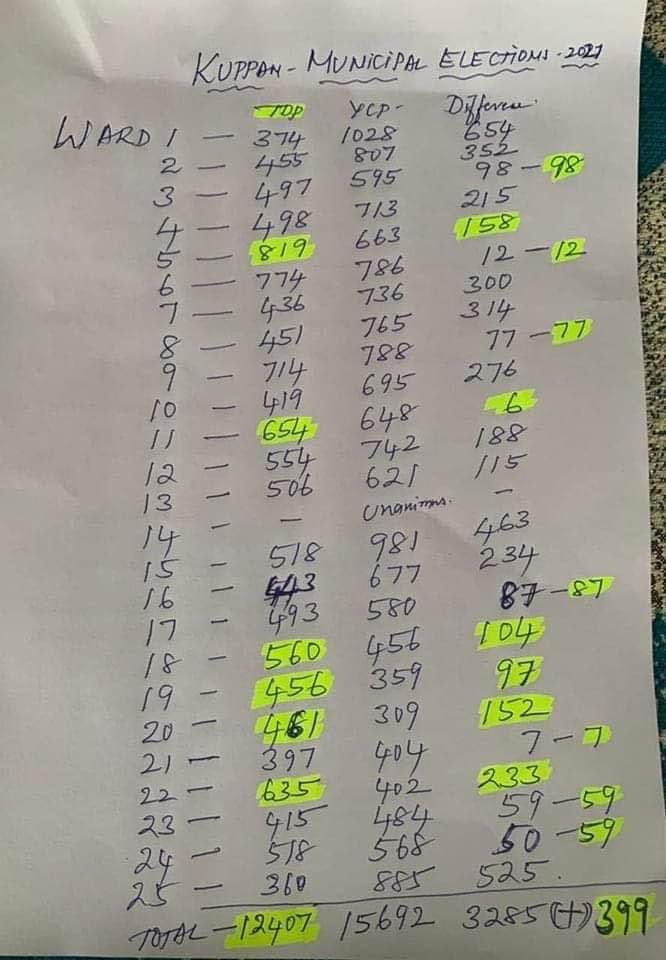 KUPPAM - MUNICIPAL ELECTIONS - 2021
TDP YCP - Difference.
WARD 1 — 374 1028 654
2 — 455 807 352
3 — 497 595 98 - 98
4 — 498 713 215
5 — 819 663 158
6 — 774 786 12 - 12
7 — 436 736 300
8 — 451 765 314
9 — 714 788 77 - 77
10 — 419 695 276
11 — 654 648 6
12 — 554 742 188
13 — 506 621 115
14 - — Unanimous. —
15 - 518 981 463
16 — 443 677 234
17 — 493 580 87 - 87
18 - 560 456 104
19 - 456 359 97
20 - 461 309 152
21 — 397 404 7 - 7
22 — 635 402 233
23 — 415 484 59 - 59
24 — 518 568 50 - 59
25 — 360 885 525.
TOTAL - 12407 15692 3285 (+) 399